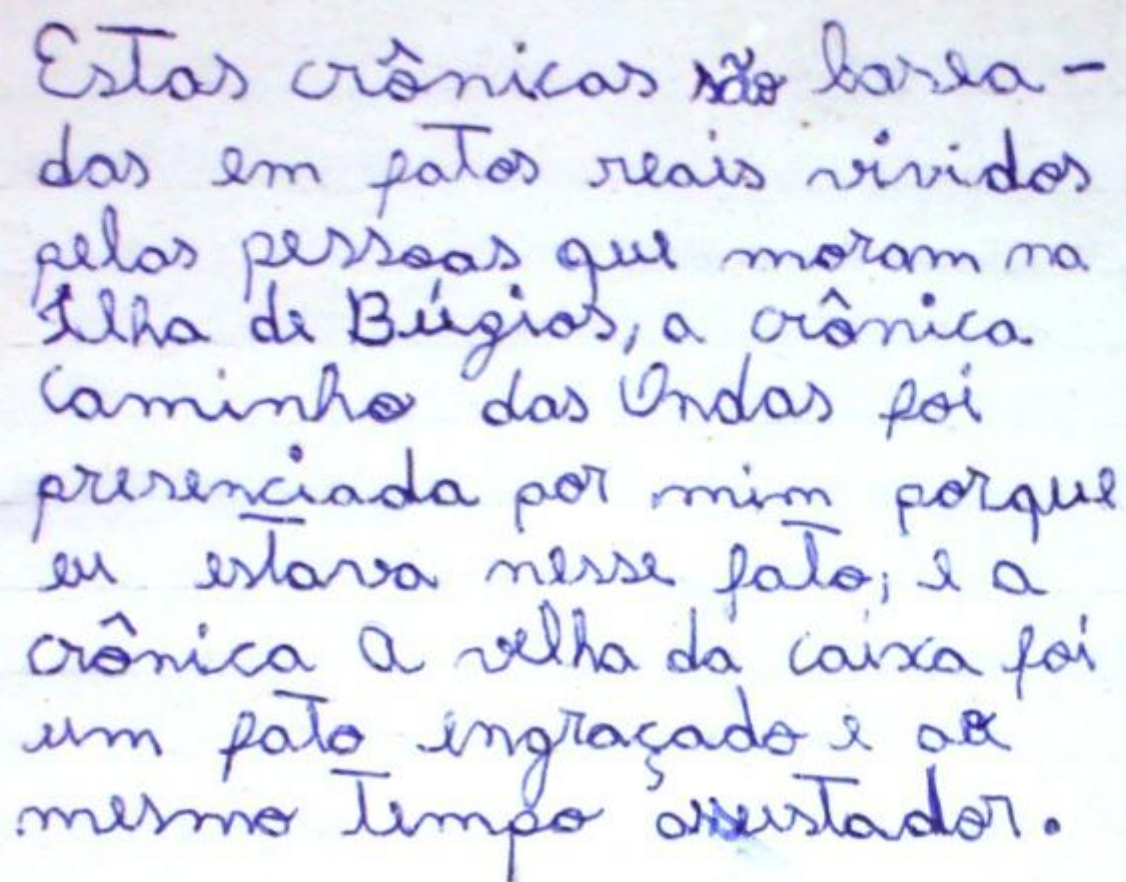 Estas crônicas são basea-
das em fatos reais vividos
pelas pessoas que moram na
Ilha de Búgios, a crônica
Caminho das Ondas foi
presenciada por mim porque
eu estava nesse fato, e a
crônica A velha da caixa foi
um fato ingraçado e ao
mesmo tempo assustador.